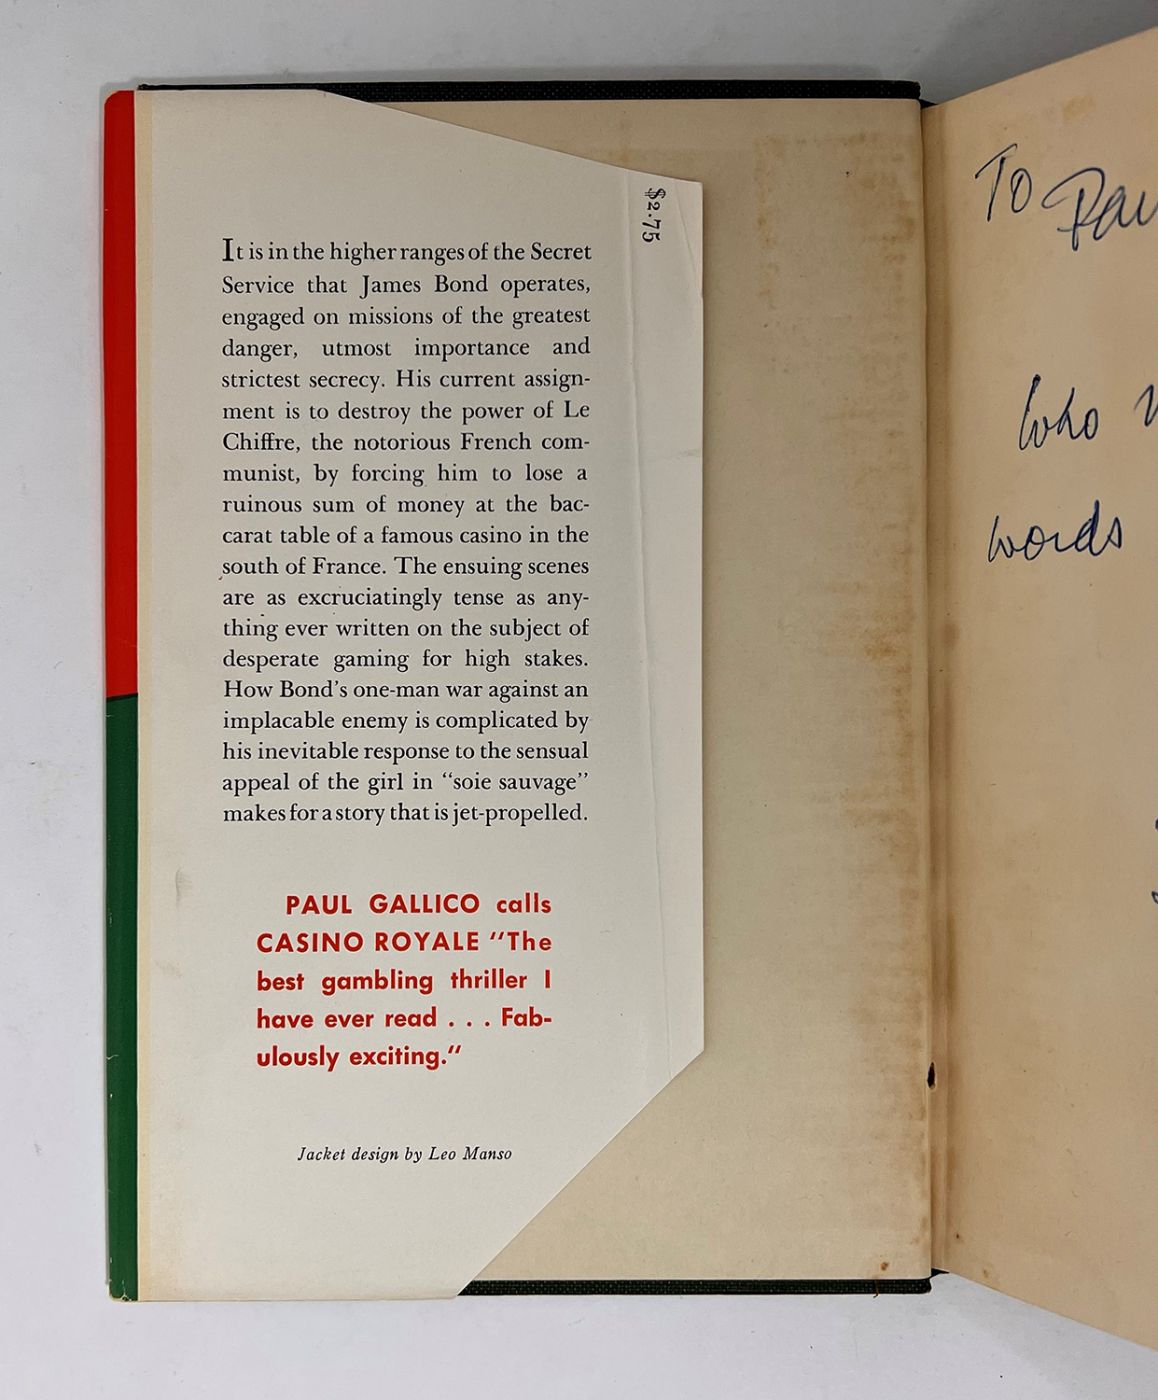 $2.75
It is in the higher ranges of the Secret
Service that James Bond operates,
engaged on missions of the greatest
danger, utmost importance and
strictest secrecy. His current assign-
ment is to destroy the power of Le
Chiffre, the notorious French com-
munist, by forcing him to lose a
ruinous sum of money at the bac-
carat table of a famous casino in the
south of France. The ensuing scenes
are as excruciatingly tense as any-
thing ever written on the subject of
desperate gaming for high stakes.
How Bond's one-man war against an
implacable enemy is complicated by
his inevitable response to the sensual
appeal of the girl in "soie sauvage"
makes for a story that is jet-propelled.
PAUL GALLICO calls
CASINO ROYALE "The
best gambling thriller I
have ever read . . . Fab-
ulously exciting."
Jacket design by Leo Manso
To
Who
words